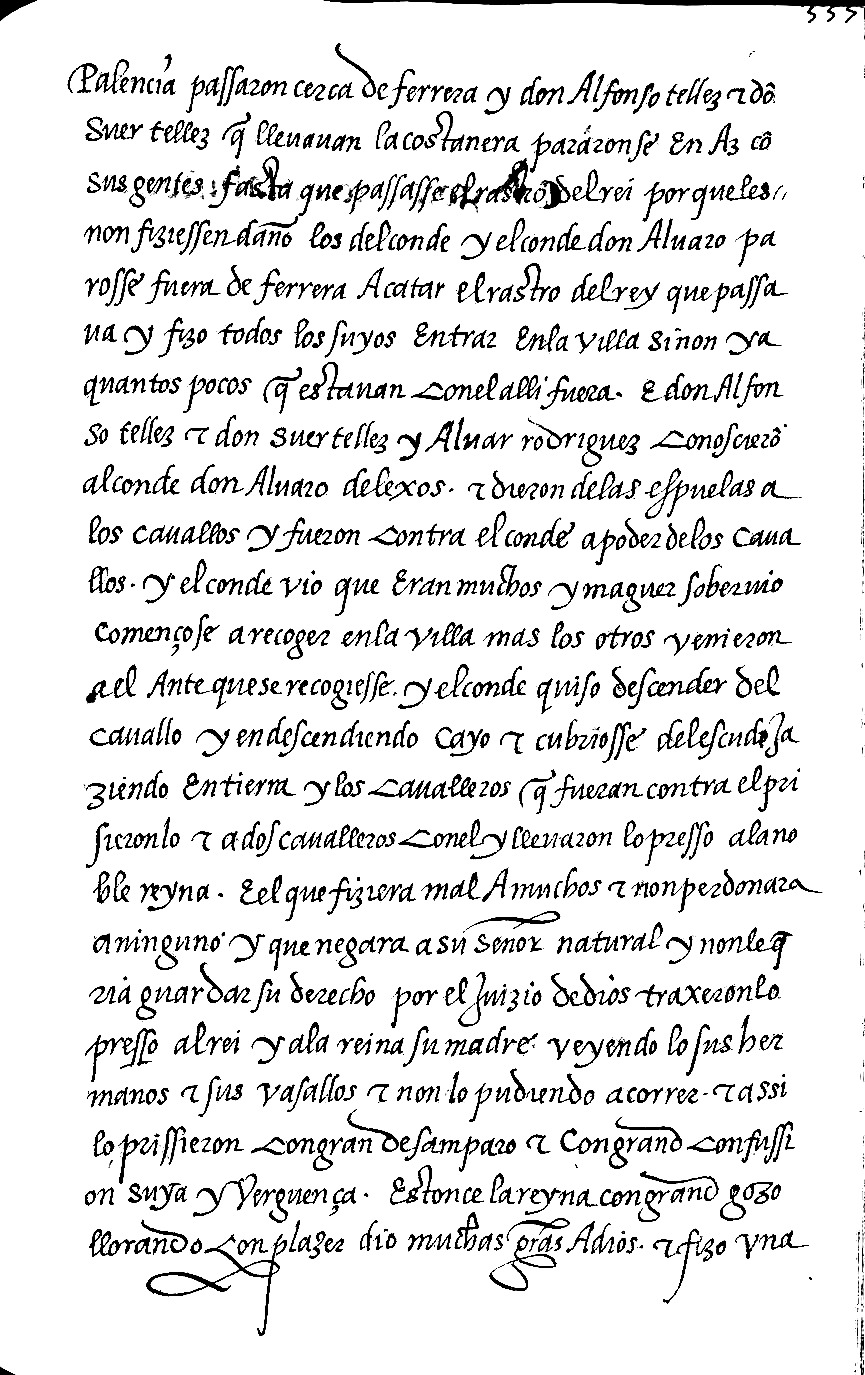 555
Palencia passaron cerca de ferrera y don Alfonso tellez τ dõ
Suer tellez q̃ lleuauan la costanera pararonse En Az cõ
sus gentes : fasta que passasse el rastro del rei por que les
non fiziessen daño los del conde y el conde don Aluaro pa
rosse fuera de ferrera Acatar el rastro del rey que passa
ua y fizo todos los suyos Entrar En la villa sinon ya
quantos pocos q̃ estauan Con el alli fuera. E don Alfon
so tellez τ don Suer tellez y Aluar rodriguez Conoscierõ
al conde don Aluaro de lexos. τ dieron de las espuelas a
los cauallos y fueron Contra el conde a poder de los Caua
llos. y el conde vio que Eran muchos y maguer soberuio
Començose a recoger en la villa mas los otros venieron
a el Ante que se recogiesse. y el conde quiso descender del
cauallo y en descendiendo Cayo τ cubriosse del escudo Ja
ziendo En tierra y los Caualleros q̃ fueran contra el pri
sieronlo τ a dos caualleros Con el y lleuaron lo presso a la no
ble reyna. E el que fiziera mal A muchos τ non perdonara
a ninguno y que negara a su Señor natural y non le q̃
ria guardar su derecho por el Juizio de dios traxeron lo
presso al rei y a la reina su madre veyendo lo sus her
manos τ sus vasallos τ non lo pudiendo acorrer. τ assi
lo prissieron Con gran desamparo τ Con grand Confussi
on suya y Verguença. Estonce la reyna con grand gozo
llorando Con plazer dio muchas gr̃as A dios. τ fizo vna